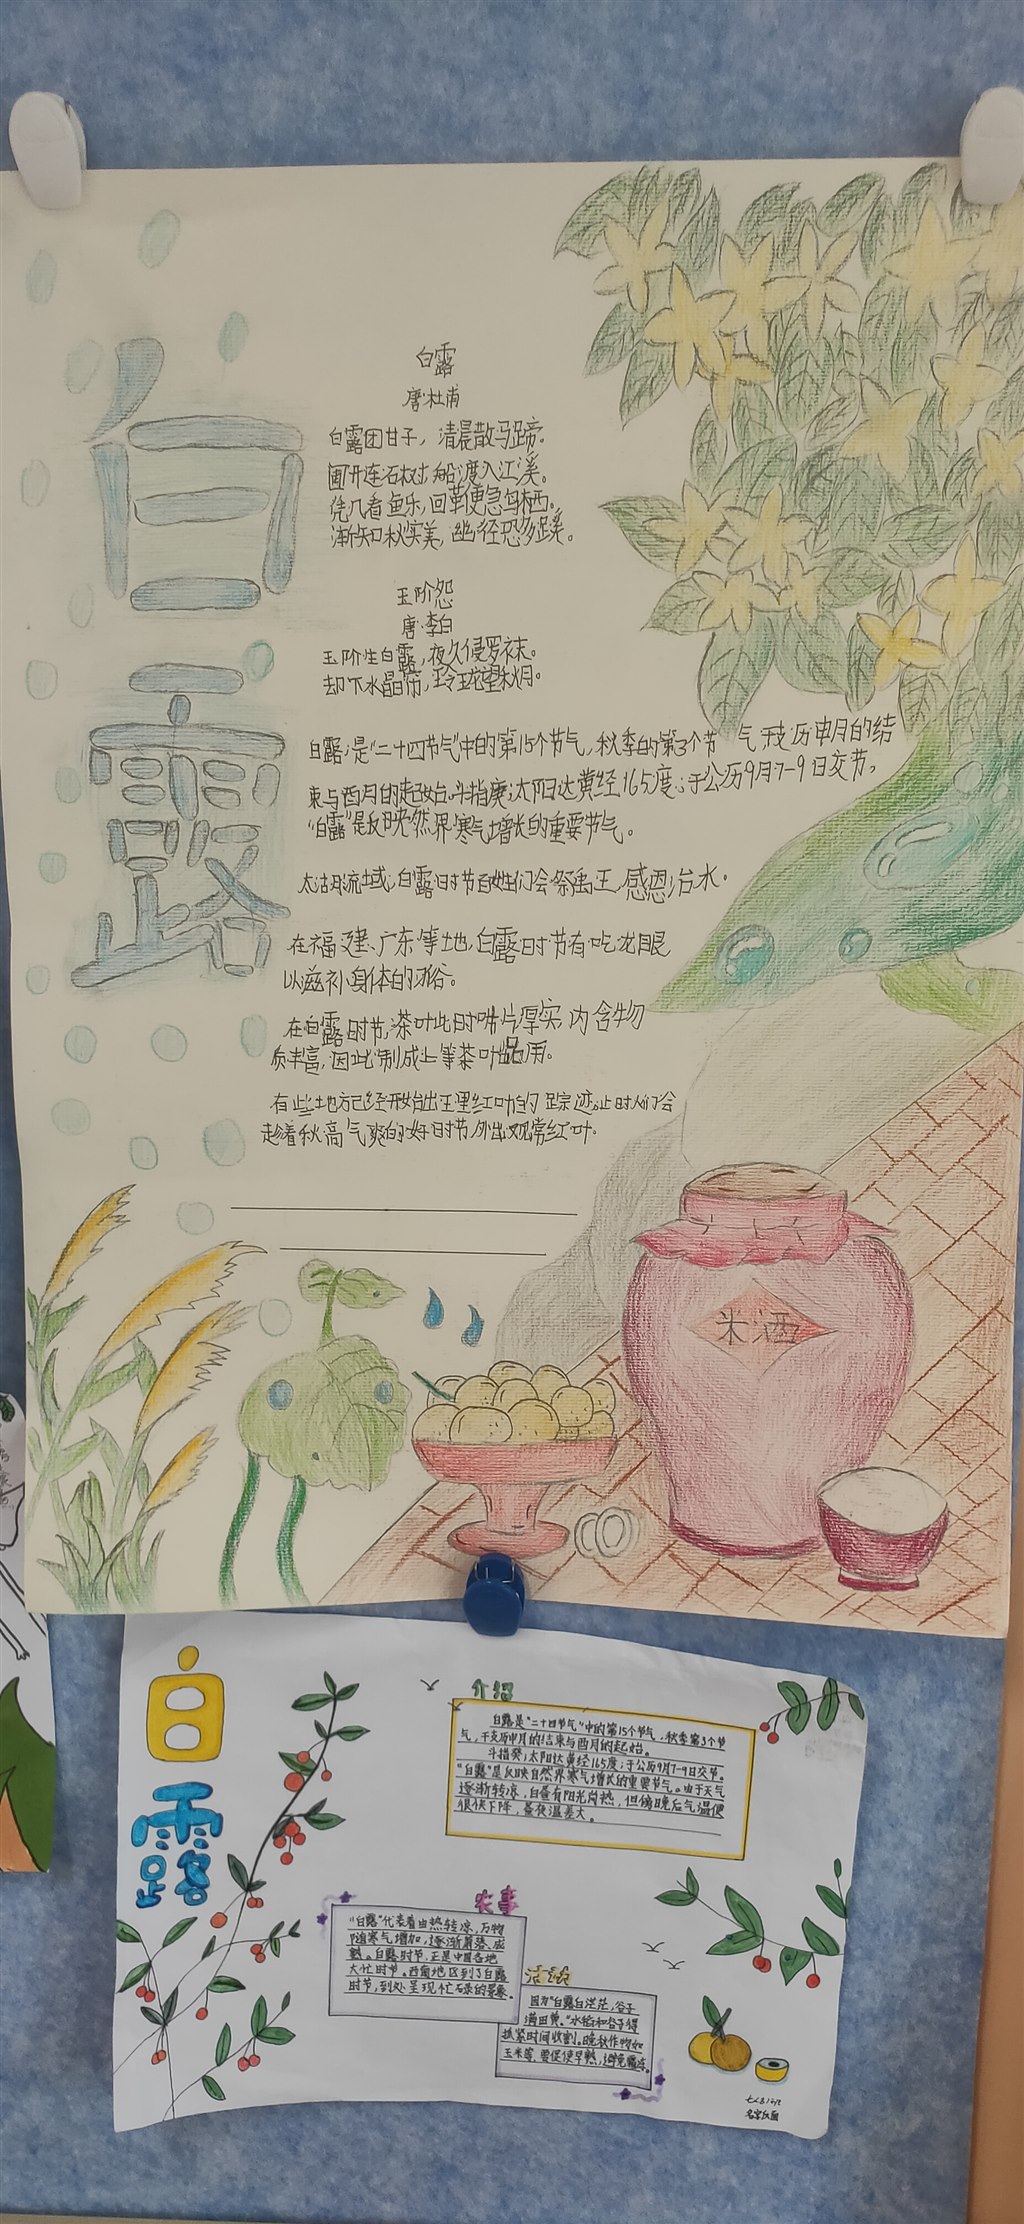 白露
白露
唐·杜甫
白露团甘子，清晨散马蹄。
圃开连石树，船渡入江溪。
凭几看鱼乐，回鞭急鸟栖。
渐知秋实美，幽径恐多蹊。
玉阶怨
唐·李白
玉阶生白露，夜久侵罗袜。
却下水晶帘，玲珑望秋月。
白露是“二十四节气”中的第15个节气，秋季的第3个节 气干支历申月的结
束与酉月的起始。斗指庚；太阳达黄经165度；于公历9月7-9日交节。
“白露”是反映自然界寒气增长的重要节气。
太湖流域，白露时节百姓们会祭禹王，感恩治水。
在福建、广东等地，白露时节有吃龙眼
以滋补身体的习俗。
在白露时节，茶叶此时 片厚实，内含物
质丰富，因此制成上等茶叶品用。
有些地方已经开始出现红叶的踪迹，此时人们会
趁着秋高气爽的好时节，外出观赏红叶。
米酒
白露
介绍
白露是“二十四节气”中的第15个节气，秋季第3个节
气，干支历申月的结束与酉月的起始。
斗指癸；太阳达黄经165度；于公历9月7-9日交节。
“白露”是反映自然界寒气增长的重要节气。由于天气
逐渐转凉，白昼有阳光尚热，但傍晚后气温便
很快下降，昼夜温差大。
农事
“白露”代表着由热转凉，万物
随寒气增加，逐渐萧落、成
熟。白露时节，正是中国各地
大忙时节。西南地区到了白露
时节，到处呈现忙碌的景象。
因为“白露白茫茫，谷子
满田黄。”水稻和谷子得
抓紧时间收割。晚秋作物如
玉米等，要促使早熟，避免霜冻。